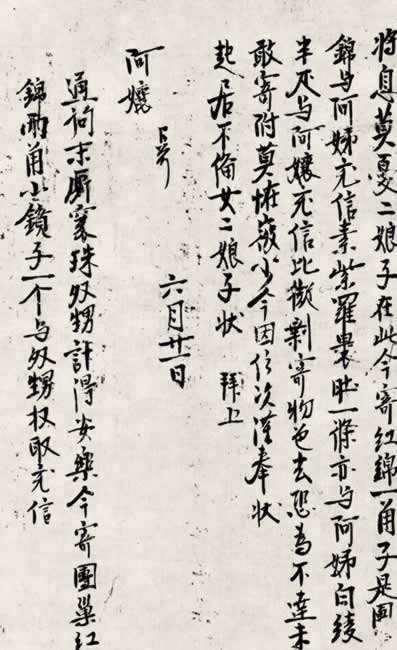 將息莫憂二娘子在此今寄紅錦一角子是團
錦与阿姊充信素紫羅裹肚一條亦与阿姊白綾
半疋与阿孃充信比擬剩寄物色去恐為不達未
敢寄附莫怪微少今因信次謹奉状
起居不備女二娘子状 拜上
阿孃
六月廿一日
通詢末厮褭珠外甥計得安樂今寄團巢紅
錦兩角小鏡子一个与外甥收取充信